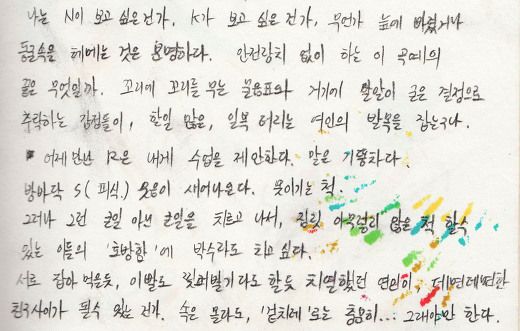 나는 N이 보고 싶은건가, K가 보고 싶은건가, 무언가 늪에 빠졌거나
동굴속을 헤메는 것은 분명하다. 안전장치 없이 하는 이 곡예의
끝은 무엇일까. 꼬리에 꼬리를 무는 물음표와 거기에 알알이 굵은 결정으로
추락하는 감정들이, 한일 많은, 일복 터리는 여인의 발목을 잡는구나.
어제 만난 R은 내게 수업을 제안한다. 말은 기똥차다.
방바닥 S( 피식.) 웃음이 새어나온다. 웃기는 척.
그러나 그런 큰일 아닌 큰일을 치르고 나서, 짐짓 아무렇지 않은 척 할수
있는 이들의 호방함'에 박수라도 치고 싶다.
서로 잡아 먹을듯, 이빨도 할듯 치열했던 연인이, 데면데면한
친구사이가 될수 있는 건가. 속은 몰라도, '겉치레'로는 충분히...: 그래야만 한다.